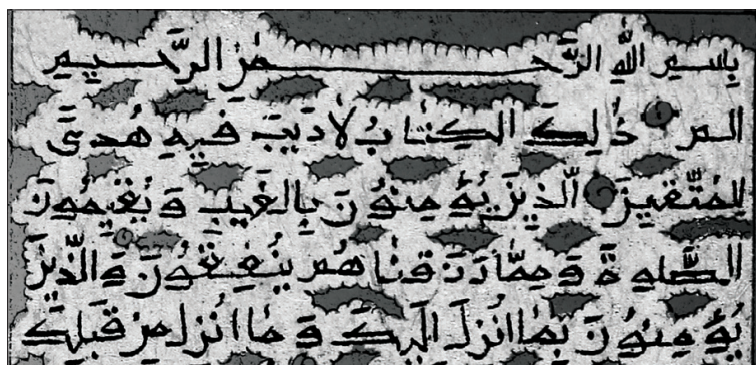 بِسْمِ اللَّهِ الرَّحْمٰنِ الرَّحِيمِ
الم ذٰلِكَ الْكِتٰابُ لَا رَيْبَ فِيهِ هُدىً
لِلْمُتَّقِينَ الَّذِينَ يُؤْمِنُونَ بِالْغَيْبِ وَيُقِيمُونَ
الصَّلوةَ وَمِمّٰا رَزَقْنٰاهُمْ يُنْفِقُونَ وَالَّذِينَ
يُؤْمِنُونَ بِمٰا اُنْزِلَ اِلَيْكَ وَمٰا اُنْزِلَ مِنْ قَبْلِكَ